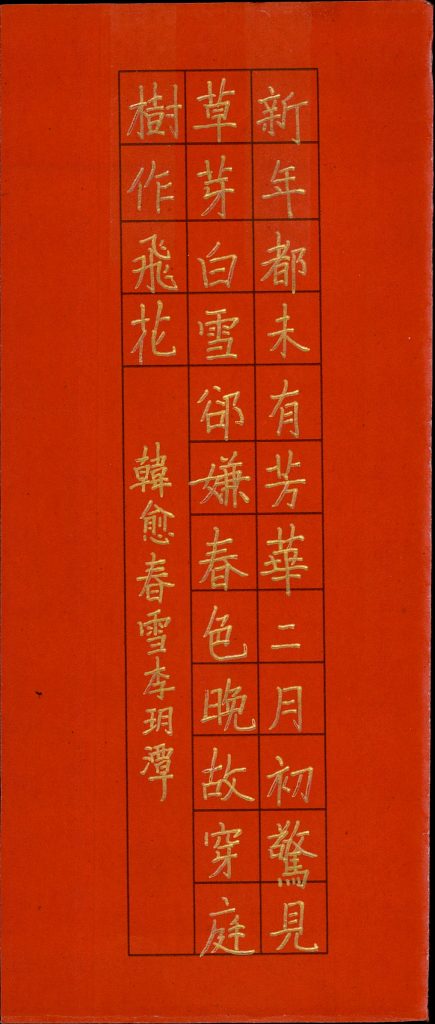 新年都未有芳華二月初驚見
草芽白雪郤嫌春色晚故穿庭
樹作飛花
韓愈春雪李玥潭